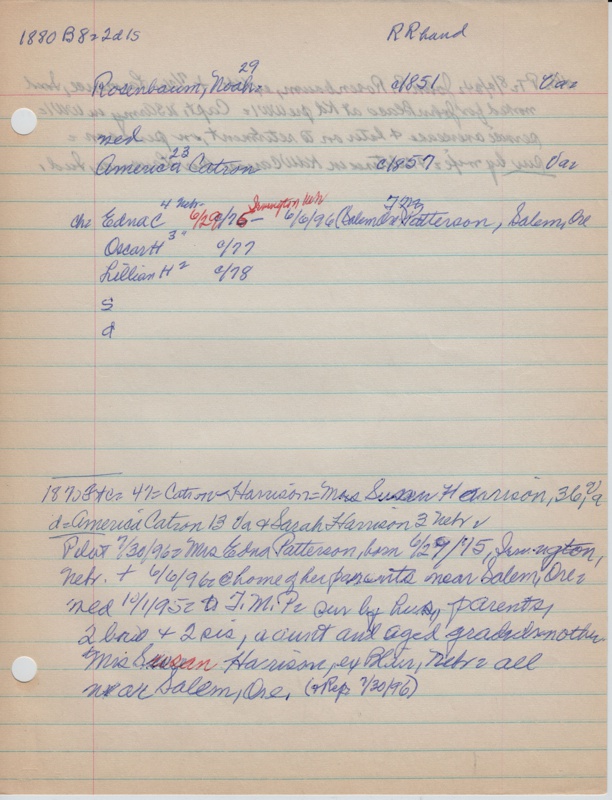 1880 B8=2d15 RRhand
Rosenbaum, Noah= 29 c/1851 Va=
med
America Catron 23 c/1857 Va=
ch: Edna C 4 Nebr- 6/29/75- Irvington Nebr 6/6/96 (Salem Ore) T M P Patterson, Salem, Ore
Oscar H 3 " c/77
Lillian H 2 c/78
S
d
= 47= Catron-Harrison= Mrs Susan Harrison, 36, Va
d=America Catron 13 Va & Sarah Harrison 3 Nebr
Pilot 7/30/96= Mrs Edna Patterson, born 6/29/75, Irvington,
Nebr. + 6/6/96 @ home of her parents near Salem, Ore=
med 10/1/95= to T. M. P= sur by hus, parents,
2 bros + 2 sis, a aunt and aged grandmother
Mrs Susan Harrison, ex Blair, Nebr= all
near Salem, Ore, (+Rep 7/30/96)